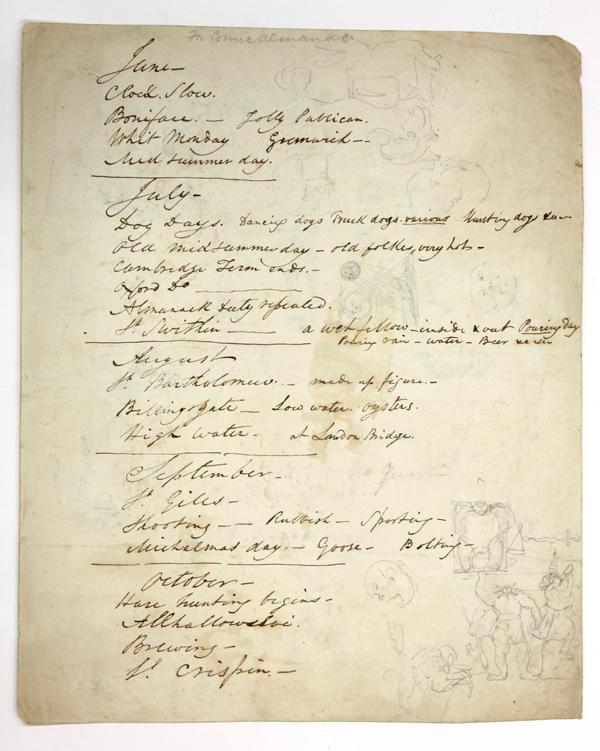 For Comic Almanack
June -
Clock. Slow.
Boniface. - Jolly Publican.
Whit Monday Greenwich -
Mid summer day.
July -
Dog Days. Dancing dogs Truck dogs. various Hunting dogs &c -
Old Midsummer day - old folkes, very hot -
Cambridge Term ends. -
Oxford Do
Almanack duty repealed.
St. Swithin - a wet fellow - inside & out Pouring day
Pouring rain - water - Beer &c &c
August
St. Bartholomew. - made up figure. -
Billingsgate - Low water. oysters.
High water - at London Bridge.
September -
St. Giles -
Shooting - - Rubbish - Sporting -
Michalmas day. - Goose - Bolting -
October -
Hare hunting begins -
Allhallows
Brewing -
St. Crispin. -